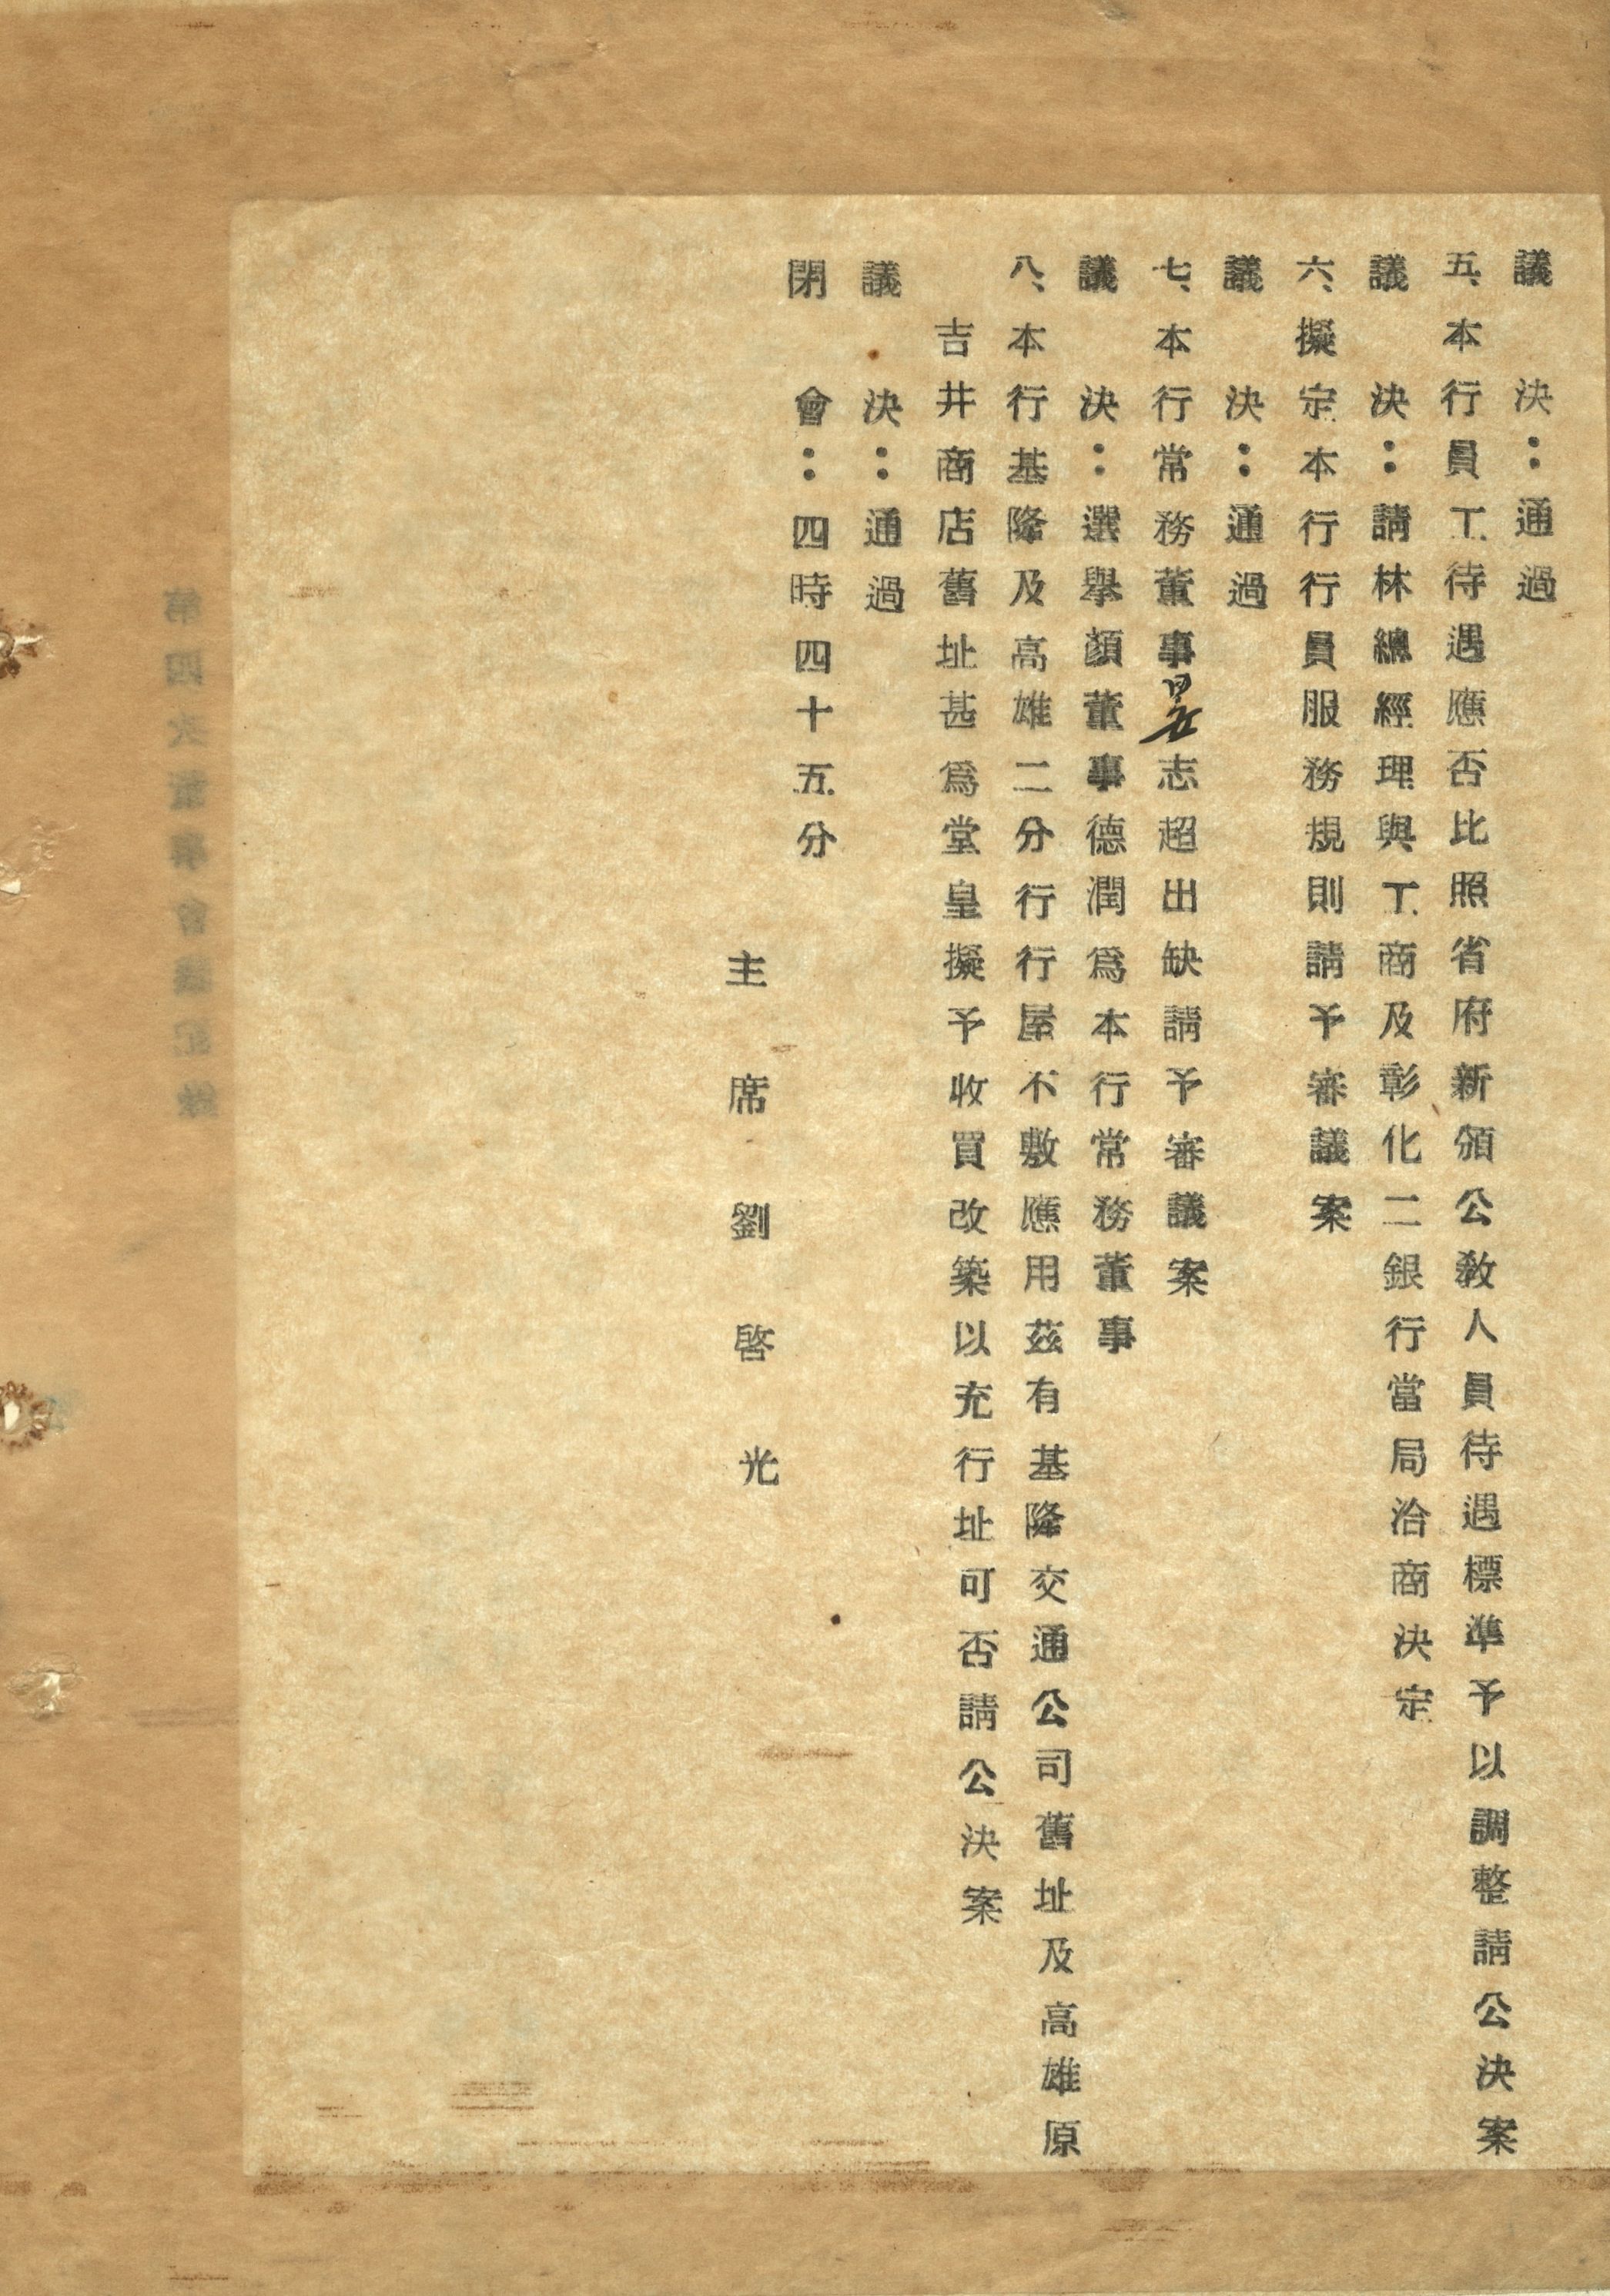 議　決：通過
五、本行員工待遇應否比照省府新頒公教人員待遇標準予以調整請公決案
議　決：請林總經理與工商及彰化二銀行當局洽商決定
六、擬定本行行員服務規則請予審議案
議　決：通過
七、本行常務董事志超出缺請予審議案
議　決：選舉顏董事德潤爲本行常務董事
八、本行基隆及高雄二分行行屋不敷應用茲有基隆交通公司舊址及高雄原
吉井商店舊址甚爲堂皇擬予收買改築以充行址可否請公決案
議　決：通過
閉　會：四時四十五分
主席 劉啓光
第四次董事會議紀錄